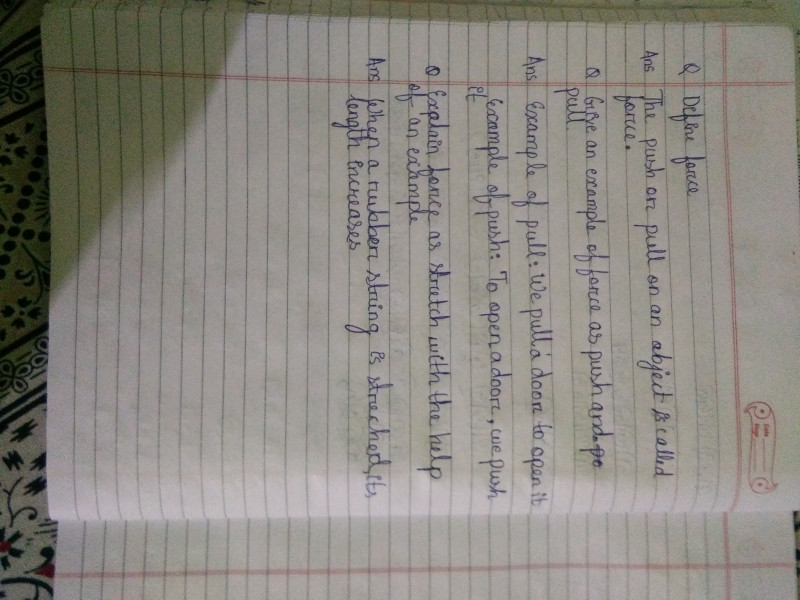 Q Define force
Ans The push or pull on an object is called
force.
Q Give an example of force as push and po
pull.
Ans Example of pull: We pull a door to open it
Example of push: To open a door, we push
it.
Q Explain force as stretch with the help
of an example
Ans When a rubber string is streched, its
length increases